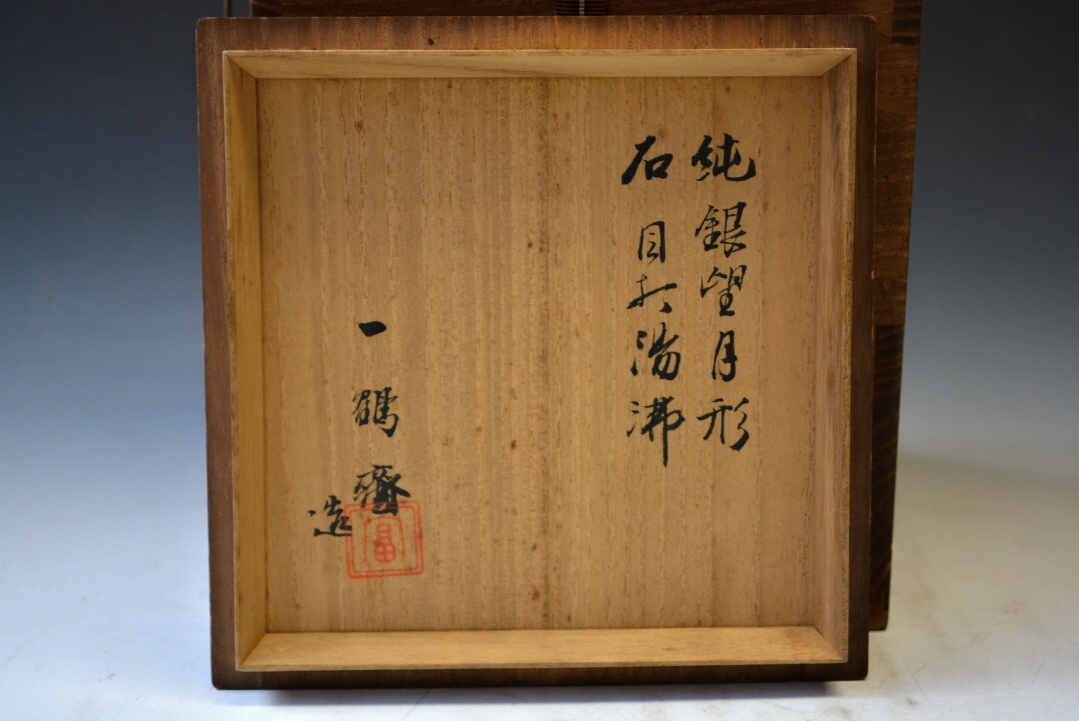 純銀望月形
石目打湯沸
一鶴齋
造